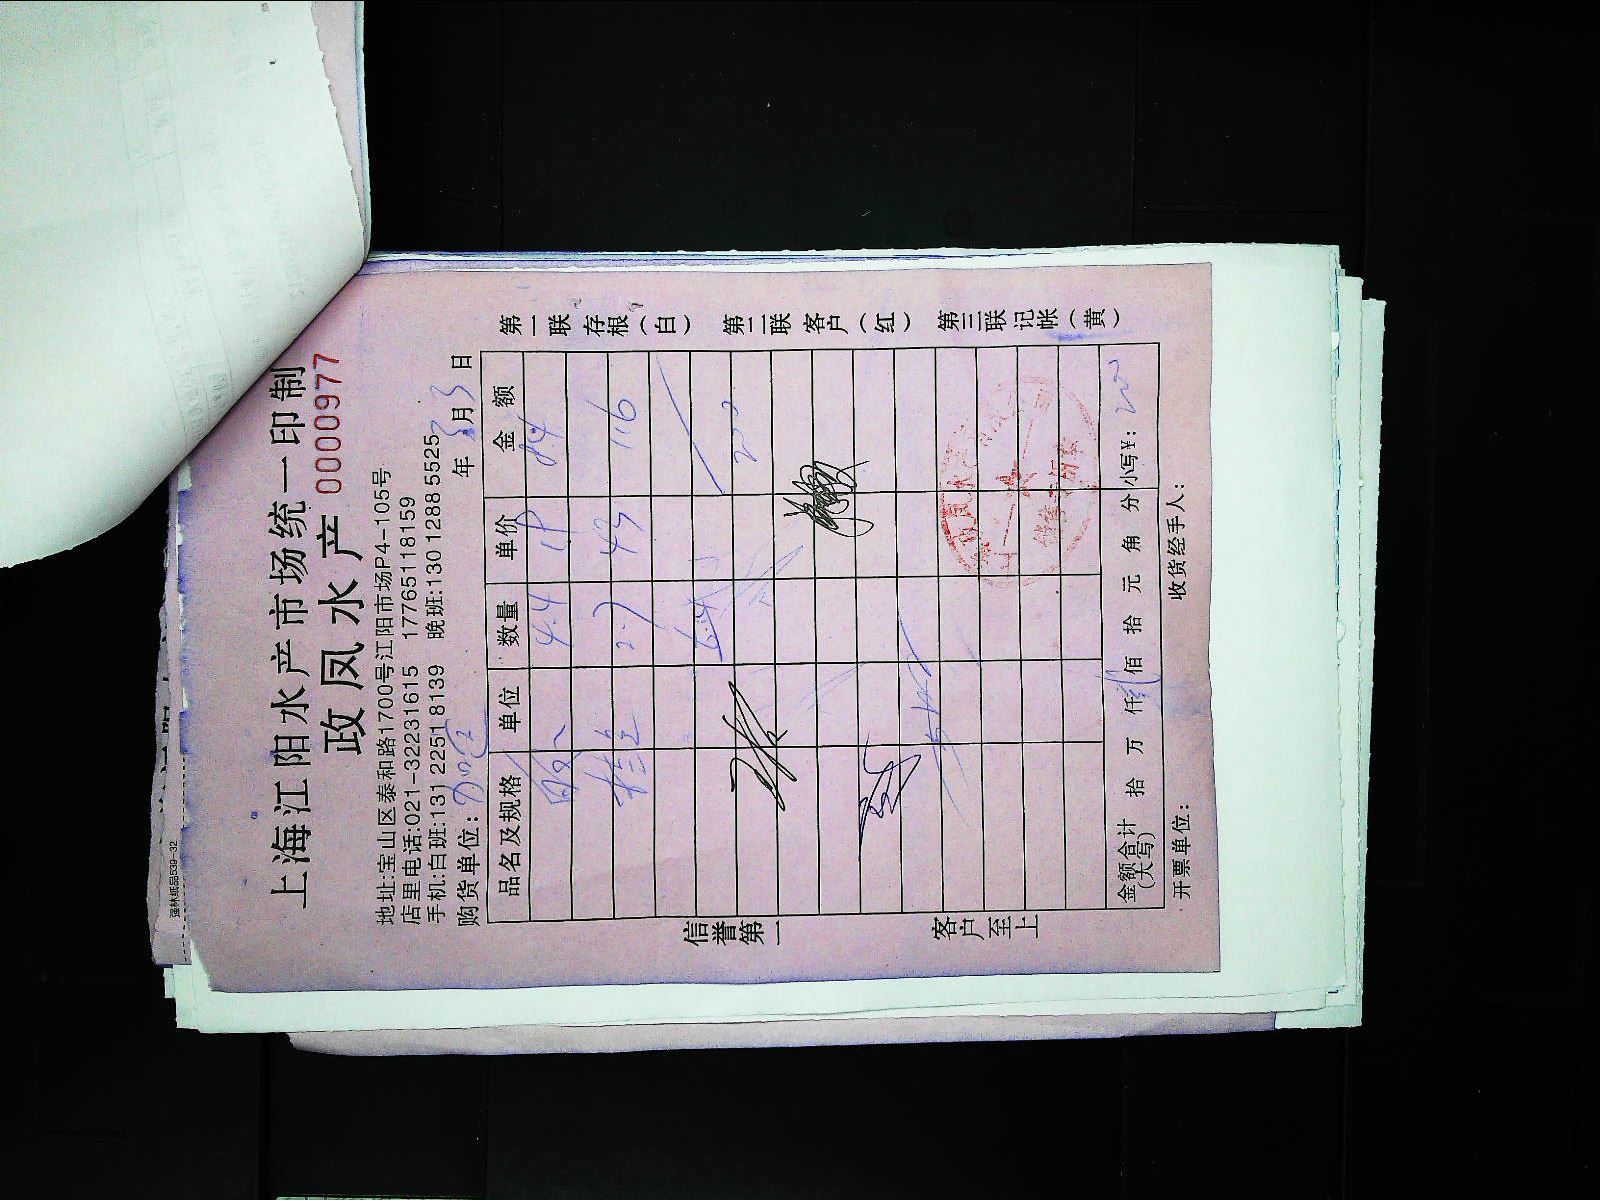 上海江阳水产市场统一印制
政凤水产 0000977
地址:宝山区泰和路1700号江阳市场P4-105号
店里电话:021-32231615 17765118159
手机:白班:131 2251 8139 晚班:130 1288 5525
购货单位: 年 3月3日
品名及规格 单位 数量 单价 金额
4.4 19 84
2.7 43 116
200
金额合计(大写) 拾 万 仟 佰 拾 元 角 分 小写¥: 200
开票单位: 收货经手人:
信誉第一
客户至上
第一联 存根(白) 第二联 客户(红) 第三联 记帐(黄)
强林纸品539-32